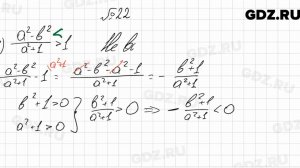 №22
GDZ.RU
) (a²-b²)/(a²+1) > 1 <
(a²-b²)/(a²+1) - 1 ^(a²+1) = (a²-b²-a²-1)/(a²+1) = - (b²+1)/(a²+1)
b²+1>0
a²+1>0 } (b²+1)/(a²+1) >0 ⇒ - (b²+1)/(a²+1) <0
GDZ.RU